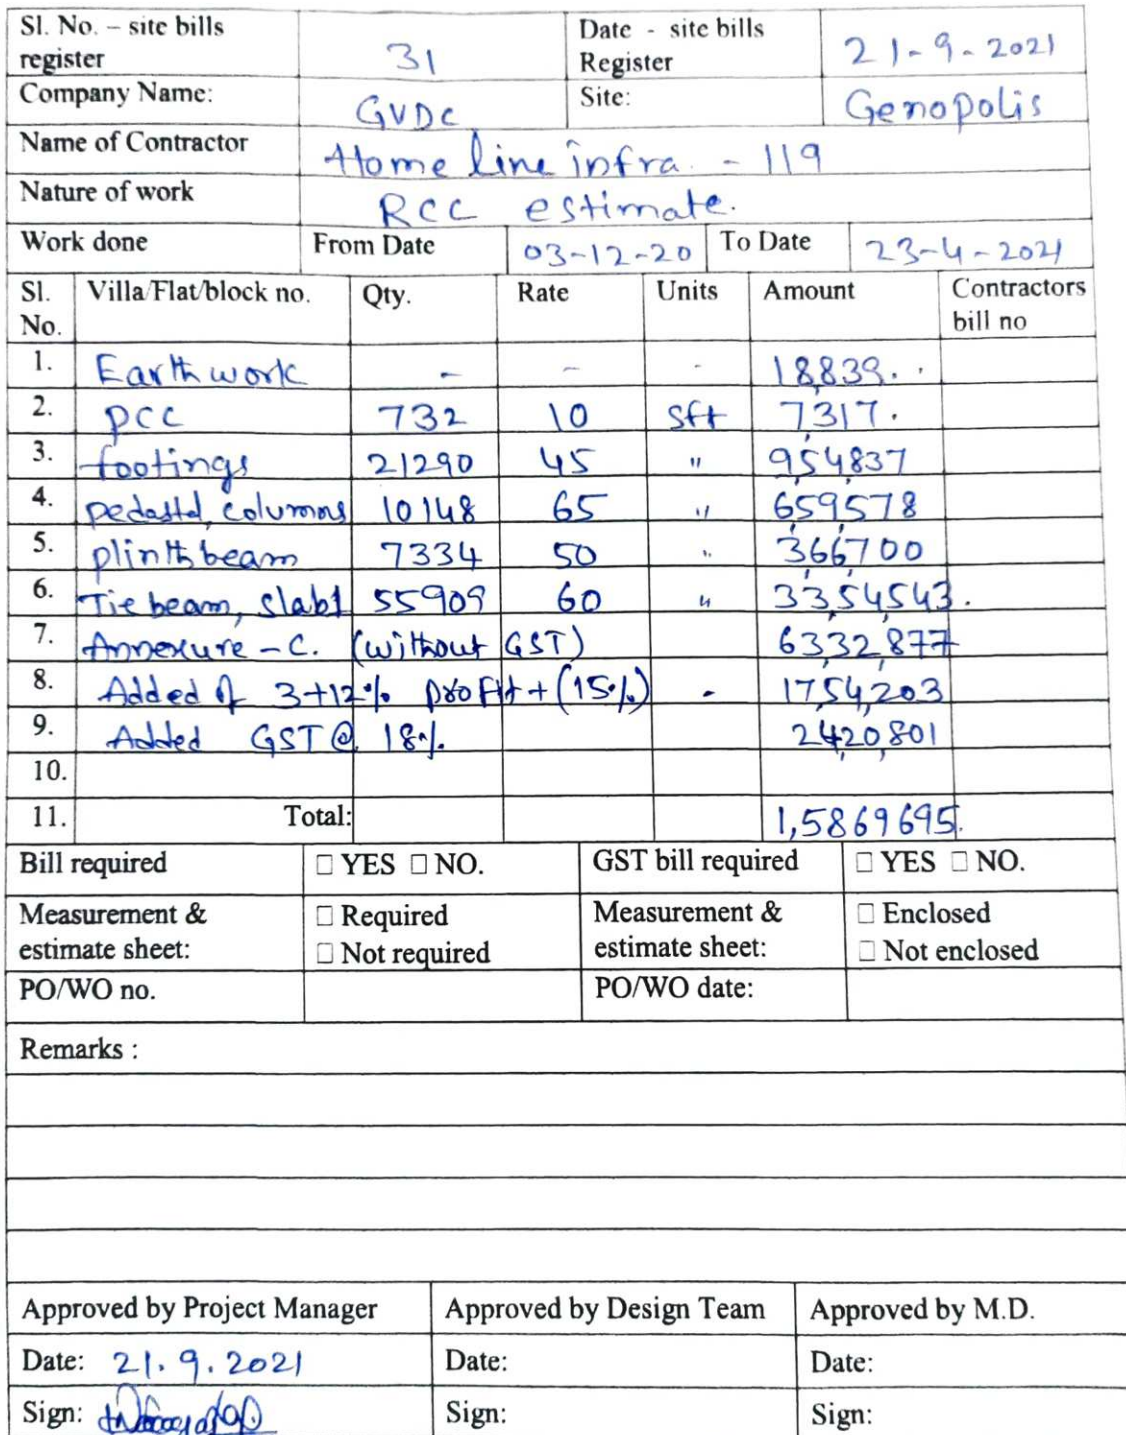 Sl. No. – site bills register 31 Date - site bills Register 21-9-2021
Company Name: GVDC Site: Genopolis
Name of Contractor Home line infra. - 119
Nature of work RCC estimate.
Work done From Date 03-12-20 To Date 23-4-2021
Sl. No. Villa/Flat/block no. Qty. Rate Units Amount Contractors bill no
1. Earth work - - - 18,839..
2. PCC 732 10 sft 7,317.
3. footings 21290 45 " 9,54,837
4. pedastal, columns 10148 65 " 6,59,578
5. plinth beam 7334 50 " 3,66,700
6. Tie beam, slabs 55909 60 " 33,54,543.
7. Annexure - C. (without GST) 63,32,877
8. Added of 3+12% profit + (15%) - 17,54,203
9. Added GST @ 18%. 24,20,801
10.
11. Total: 1,5869695.
Bill required □ YES □ NO. GST bill required □ YES □ NO.
Measurement & estimate sheet: □ Required □ Not required Measurement & estimate sheet: □ Enclosed □ Not enclosed
PO/WO no. PO/WO date:
Remarks :
Approved by Project Manager Approved by Design Team Approved by M.D.
Date: 21.9.2021 Date: Date:
Sign: Sign: Sign: